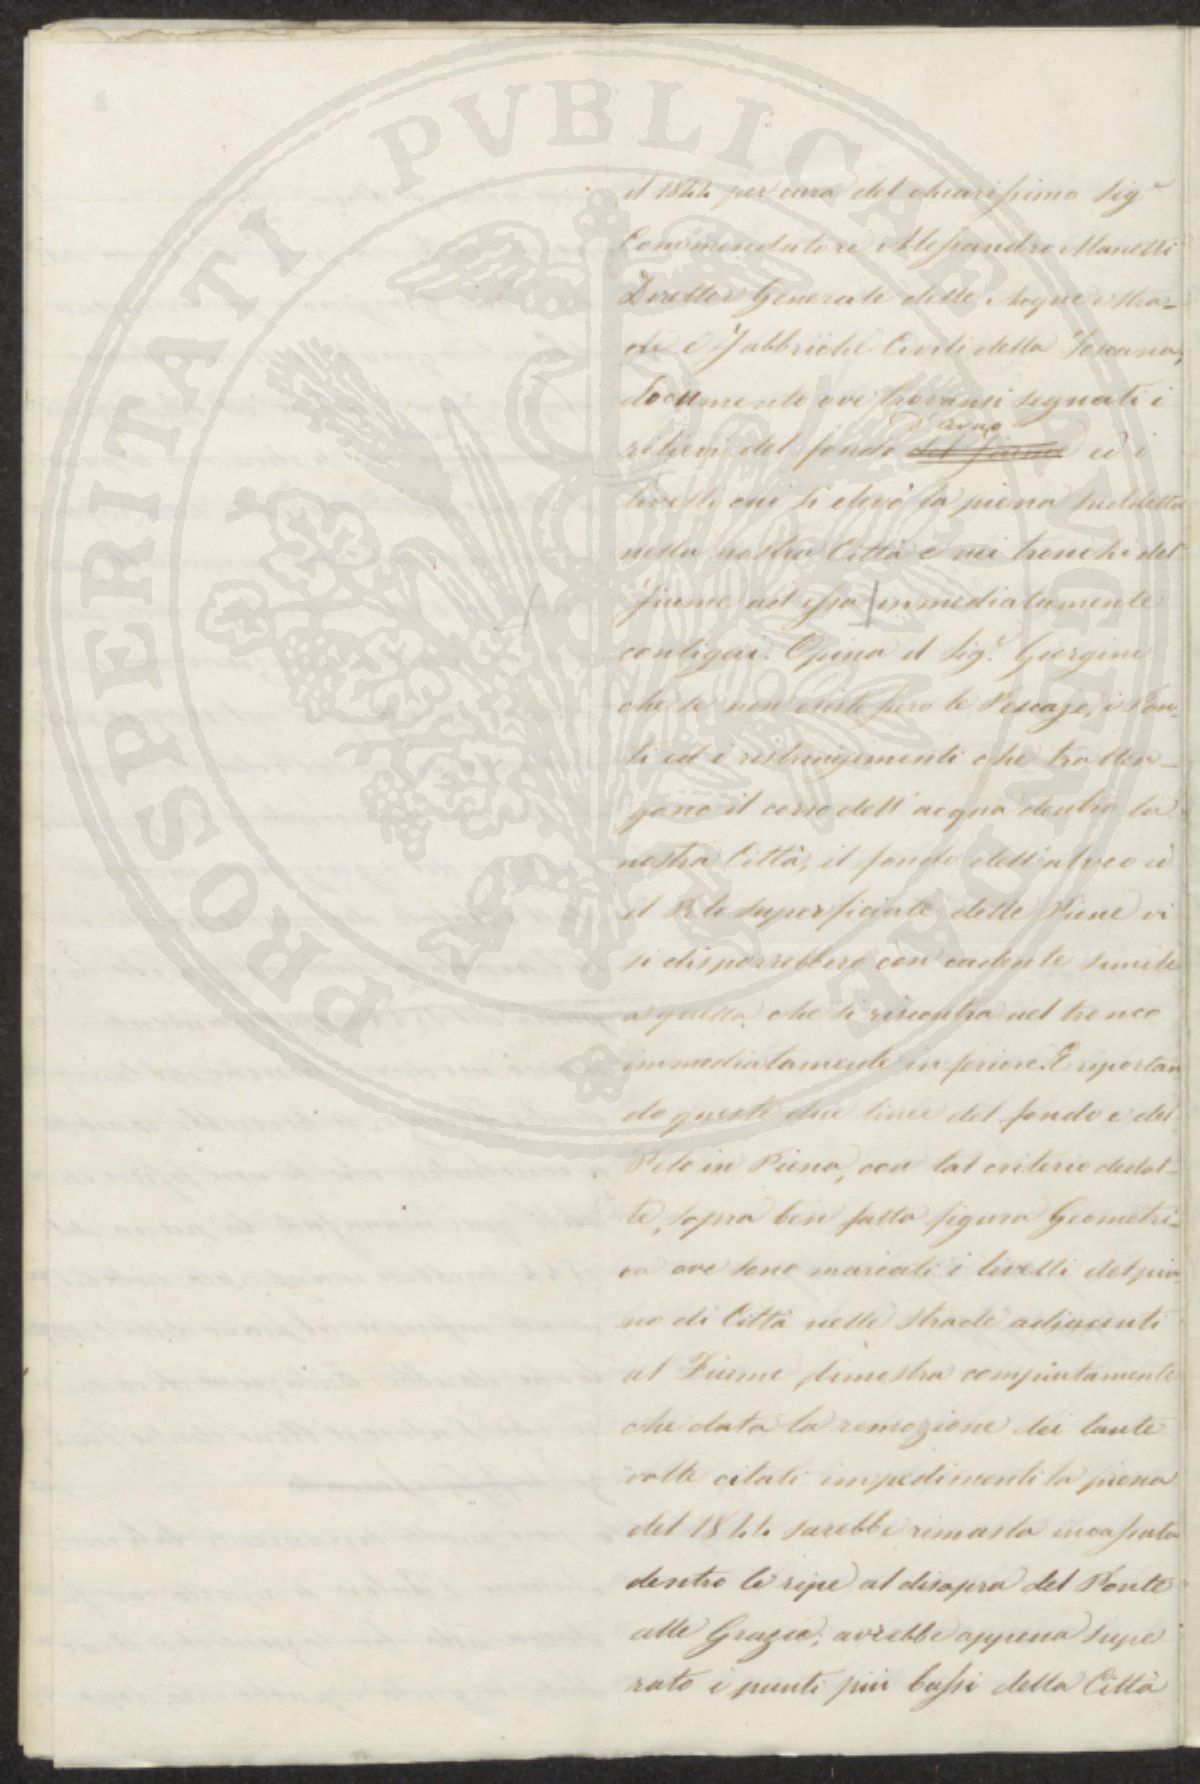 PROSPERITATI PVBLICAE AVGENDAE
il 1844 per cura del chiarissimo Sigr
Commendatore Alessandro Manetti
Direttor Generale delle Acque e Stra-
de e Fabbriche Civili della Toscana,
documento ove trovansi segnati i
d'Arno
rilievi del fondo del fiume ed i
livelli cui si elevò la piena suddetta
nella nostra Città e nei tronchi del
Fiume ad essa immediatamente
contigui. Opina il Sigr. Giorgini
che se non esistessero le Pescaje, i Pon-
ti ed i restringimenti che tratten-
gono il corso dell'acqua dentro la
nostra Città, il fondo dell'alveo ed
il Pelo superficiale delle Piene vi
si disporrebbero con cadente simile
a quella che si riscontra nel tronco
immediatamente inferiore. E riportan-
do queste due linee del fondo e del
Pelo in Piena, con tal criterio dedot-
te, sopra ben fatta figura Geometri-
ca ove sono marcati i livelli del pia-
no di Città nelle strade adiacenti
al Fiume, dimostra compiutamente
che data la remozione dei tante
volte citati impedimenti la piena
del 1844 sarebbe rimasta incassata
dentro le ripe al disopra del Ponte
alle Grazie; avrebbe appena supe
rato i punti più bassi della Città